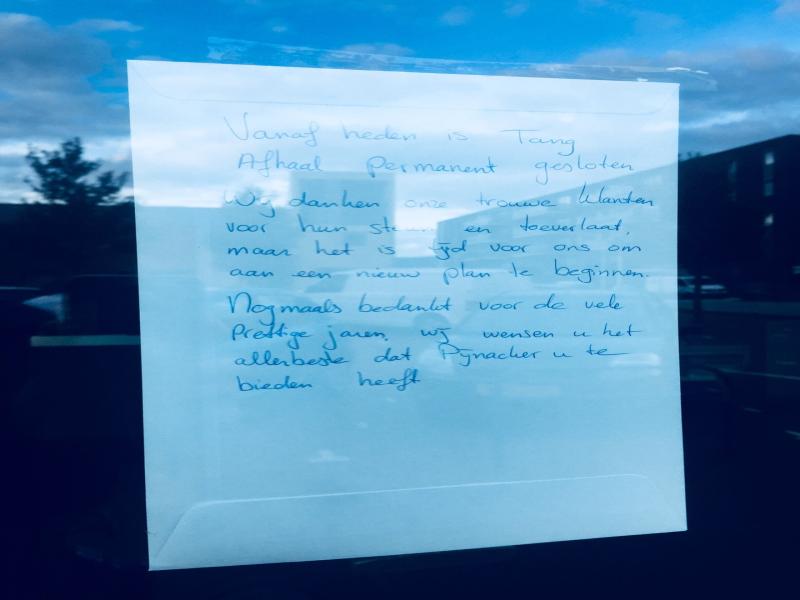 Vanaf heden is Tang
Afhaal permanent gesloten
Wij danken onze trouwe klanten
voor hun steun en toeverlaat,
maar het is tijd voor ons om
aan een nieuw plan te beginnen.
Nogmaals bedankt voor de vele
Prettige jaren, wij wensen u het
allerbeste dat Pijnacker u te
bieden heeft